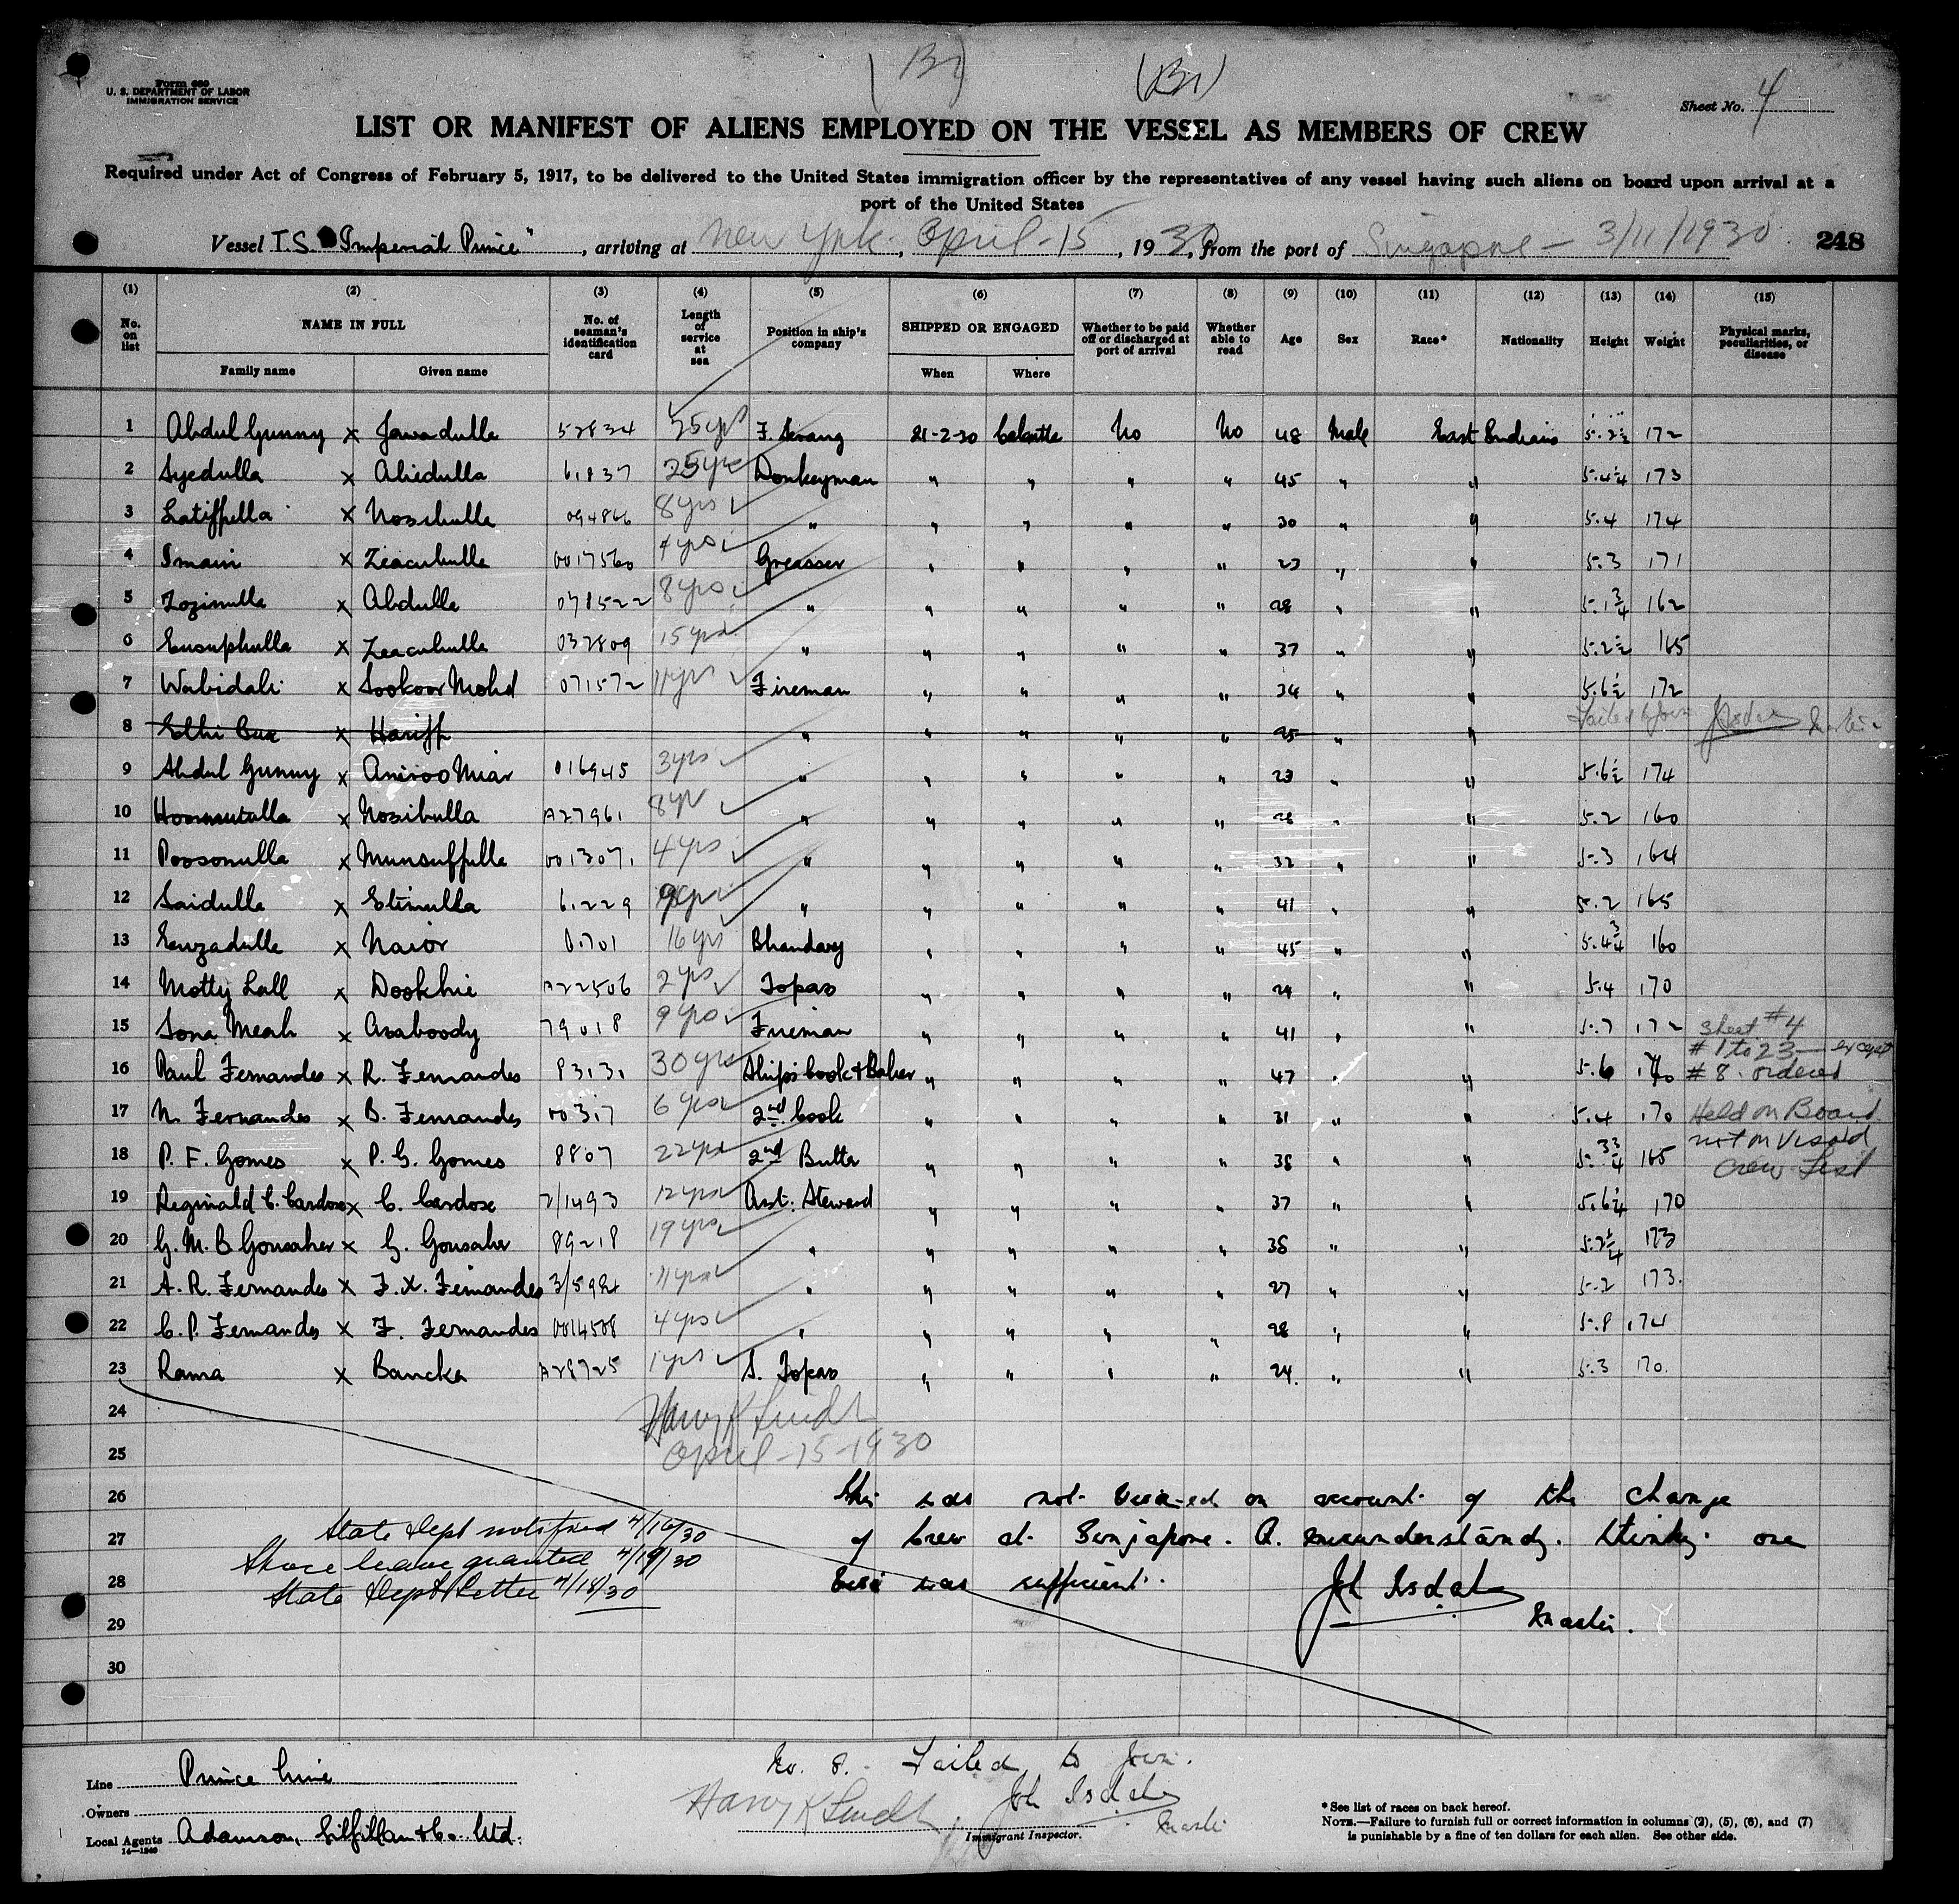 (Br) (Br)
Form 680
U. S. DEPARTMENT OF LABOR
IMMIGRATION SERVICE
Sheet No. 4
LIST OR MANIFEST OF ALIENS EMPLOYED ON THE VESSEL AS MEMBERS OF CREW
Required under Act of Congress of February 5, 1917, to be delivered to the United States immigration officer by the representatives of any vessel having such aliens on board upon arrival at a
port of the United States
Vessel T.S "Imperial Prince", arriving at New York, April-15, 1930, from the port of Singapore - 3/11/1930 248
(1) (2) (3) (4) (5) (6) (7) (8) (9) (10) (11) (12) (13) (14) (15)
No. on list NAME IN FULL No. of seaman's identification card Length of service at sea Position in ship's company SHIPPED OR ENGAGED Whether to be paid off or discharged at port of arrival Whether able to read Age Sex Race* Nationality Height Weight Physical marks, peculiarities, or disease
Family name Given name When Where
1 Abdul Gunny x Jawadulla 52834 25yrs F. Serang 21-2-30 Calcutta No No 48 Male East Indian 5.2½ 172
2 Syedulla x Abiedulla 61837 25yrs Donkeyman " " " " 45 " " 5.4¼ 173
3 Latiffulla x Nosibulla 094866 8yrs " " " " " 30 " " 5.4 174
4 Imain x Zeacubulla 0017560 4yrs Greasser " " " " 23 " " 5.3 171
5 Tozimulla x Abdulla 071522 8yrs " " " " " 28 " " 5.1¾ 162
6 Eusuphulla x Zeacubulla 032809 15yrs " " " " " 37 " " 5.2½ 165
7 Wabidali x Sookoor Mohd 071572 11yrs Fireman " " " " 34 " " 5.6½ 172
8 Ellhi Bux x Hariff " " " " " 25 " " Failed to Join Master
9 Abdul Gunny x Amiroo Miar 016945 3yrs " " " " " 23 " " 5.6½ 174
10 Hoomutulla x Nosibulla A27961 8yr " " " " " 28 " " 5.2 160
11 Poosonulla x Munsuffulla 0013071 4yrs " " " " " 32 " " 5.3 164
12 Saidulla x Etimulla 61229 9yrs " " " " " 41 " " 5.2 165
13 Enzadulla x Naior 0701 16yrs Bhandary " " " " 45 " " 5.4¾ 160
14 Motty Lall x Dookhie A22506 2yrs Topas " " " " 24 " " 5.4 170
15 Sona Meah x Asaboody 79018 9yrs Fireman " " " " 41 " " 5.7 172 Sheet #4
# 1 to 23 — except
16 Paul Fernandes x R. Fernandes 83131 30yrs Ships Cook & Baker " " " " 47 " " 5.6 170 # 8. ordered
17 N. Fernandes x B. Fernandes 00317 6yrs 2nd Cook " " " " 31 " " 5.4 170 Held on Board
18 P. F. Gomes x P. G. Gomes 8807 22yrs 2nd Butler " " " " 38 " " 5.3¾ 165 not on Visaid
Crew List
19 Reginald C. Cardose x C. Cardose 2/1493 12yrs Asst: Steward " " " " 37 " " 5.6¼ 170
20 G. M. B Gonsalver x G. Gonsalver 89218 19yrs " " " " " 38 " " 5.2¼ 173
21 A. R. Fernandes x F. X. Fernandes 3/5984 11yrs " " " " " 27 " " 5.2 173.
22 C. P. Fernandes x F. Fernandes 0014508 4yrs " " " " " 28 " " 5.8 174
23 Rama x Bancka A28725 1yrs S. Topas " " " " 24. " " 5.3 170.
24 Harry K Lindt
25 April-15-1930
26 This was not visa-ed on account of the change
27 State Dept notified 4/16/30 of Crew at Singapore. A misunderstandg. thinking one
Shore leave granted 4/19/30
28 State Dept Letter 4/18/30 Visa was sufficient. Joh Isdahl
29 Master.
30
No. 8. Failed to join.
Line Prince Line
Harry K Lindt Joh Isdahl
Owners Master
Local Agents Adamson, Gilfillan & Co. Ltd.
14—1240
Immigrant Inspector.
* See list of races on back hereof.
NOTE.—Failure to furnish full or correct information in columns (2), (5), (6), and (7)
is punishable by a fine of ten dollars for each alien. See other side.